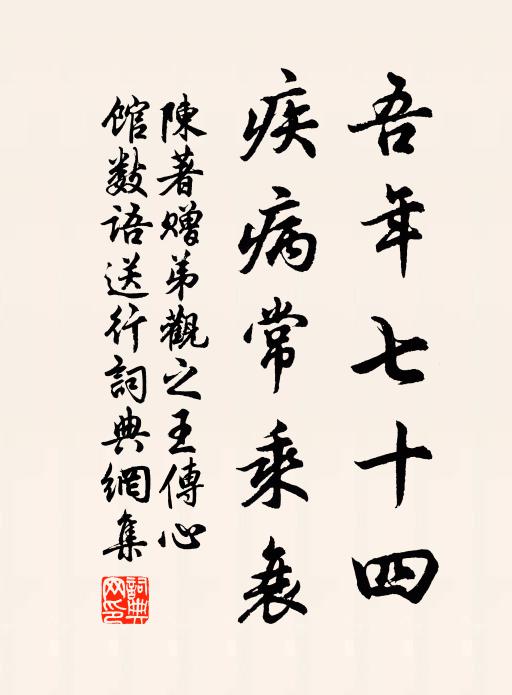 吾年七十四
疾病常乘衰
陳著贈弟觀之王傳心
館數語送行詞典網集
詞典网印